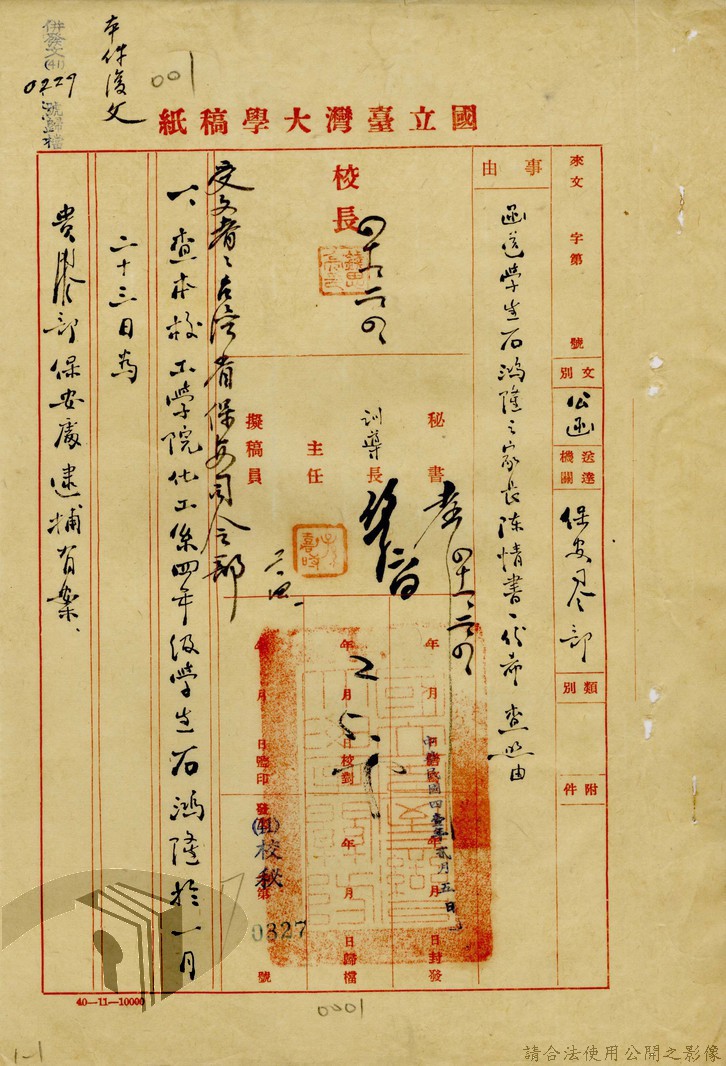 併發文(41)
0229號歸檔
本件復文
001
國立臺灣大學稿紙
來文 字第 號
文別 公函
送達機關 保安司令部
類別
附件
事由
函送學生石鴻隆之家長陳情書一份希查照由
校長
四十一、二、四
秘書
四十一、二、四
訓導長
主任
擬稿員
二、四
年 月 日封發
中華民國四壹年貳月五日
年 月 日校對
年 月 日歸檔
年 月 日監印
發文(41)校秘字第0327號
受文者:台灣省保安司令部
一、查本校工學院化工系四年級學生石鴻隆於一月
二十三日為
貴司令部保安處逮捕有案、
40—11—10000
0001
1-1
請合法使用公開之影像